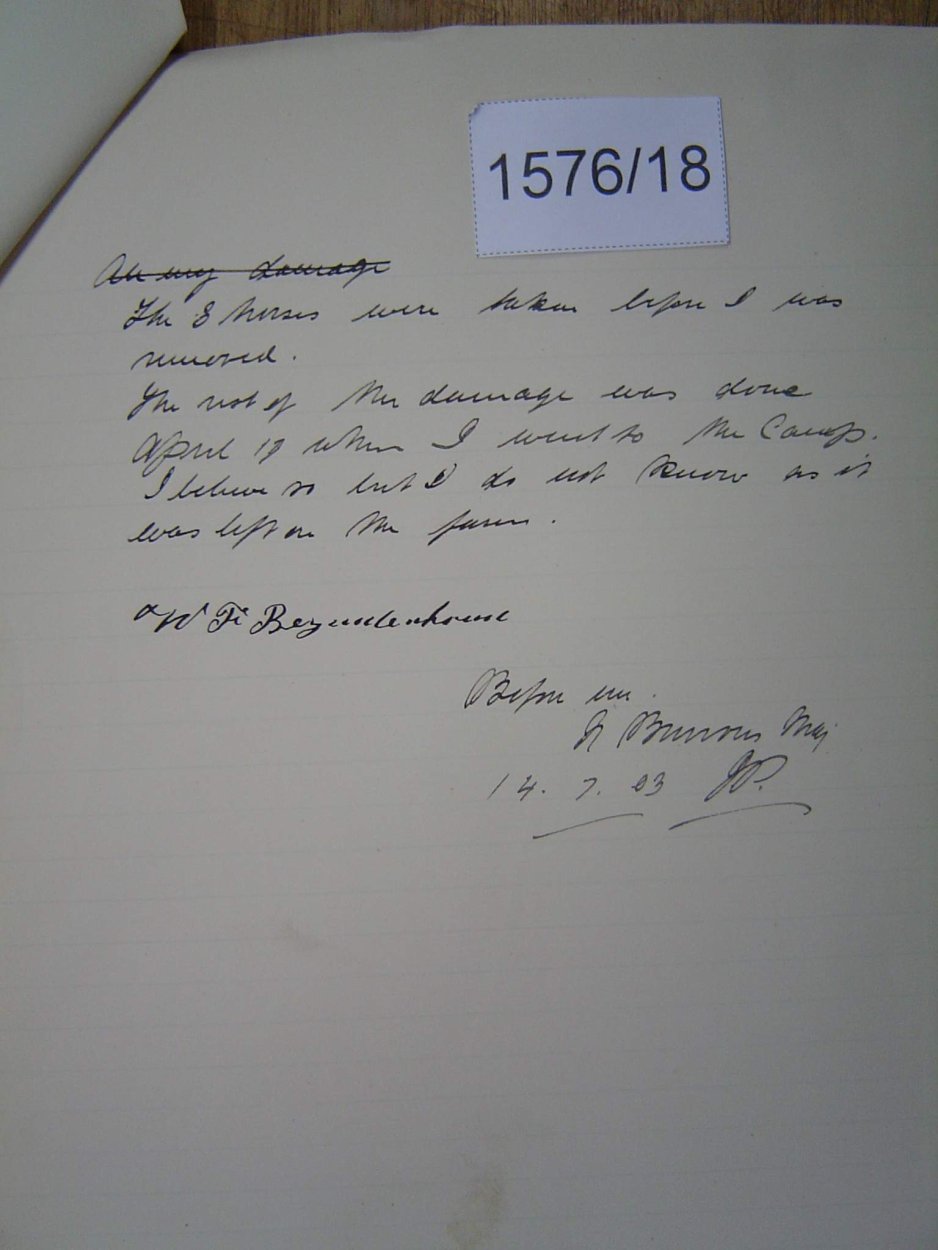 1576/18
All my damage
The 8 horses were taken before I was
removed.
The rest of the damage was done
April 19 when I went to the Camp.
I believe so but I do not know as it
was left on the farm.
Bezuidenhoud
Before me.
Burrows Maj
14. 7. 03 JP.